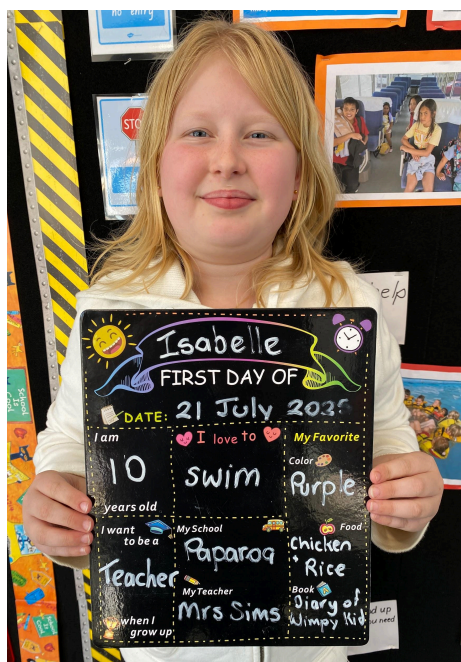 no entry
STOP
help
School
Is
Cool
Isabelle
FIRST DAY OF
DATE: 21 July 2025
I am
10
years old
I love to
swim
My Favorite
Color
Purple
I want
to be a
Teacher
when I
grow up
My School
Paparoa
My Teacher
Mrs Sims
Food
Chicken
+ Rice
Book
Diary of
Wimpy Kid